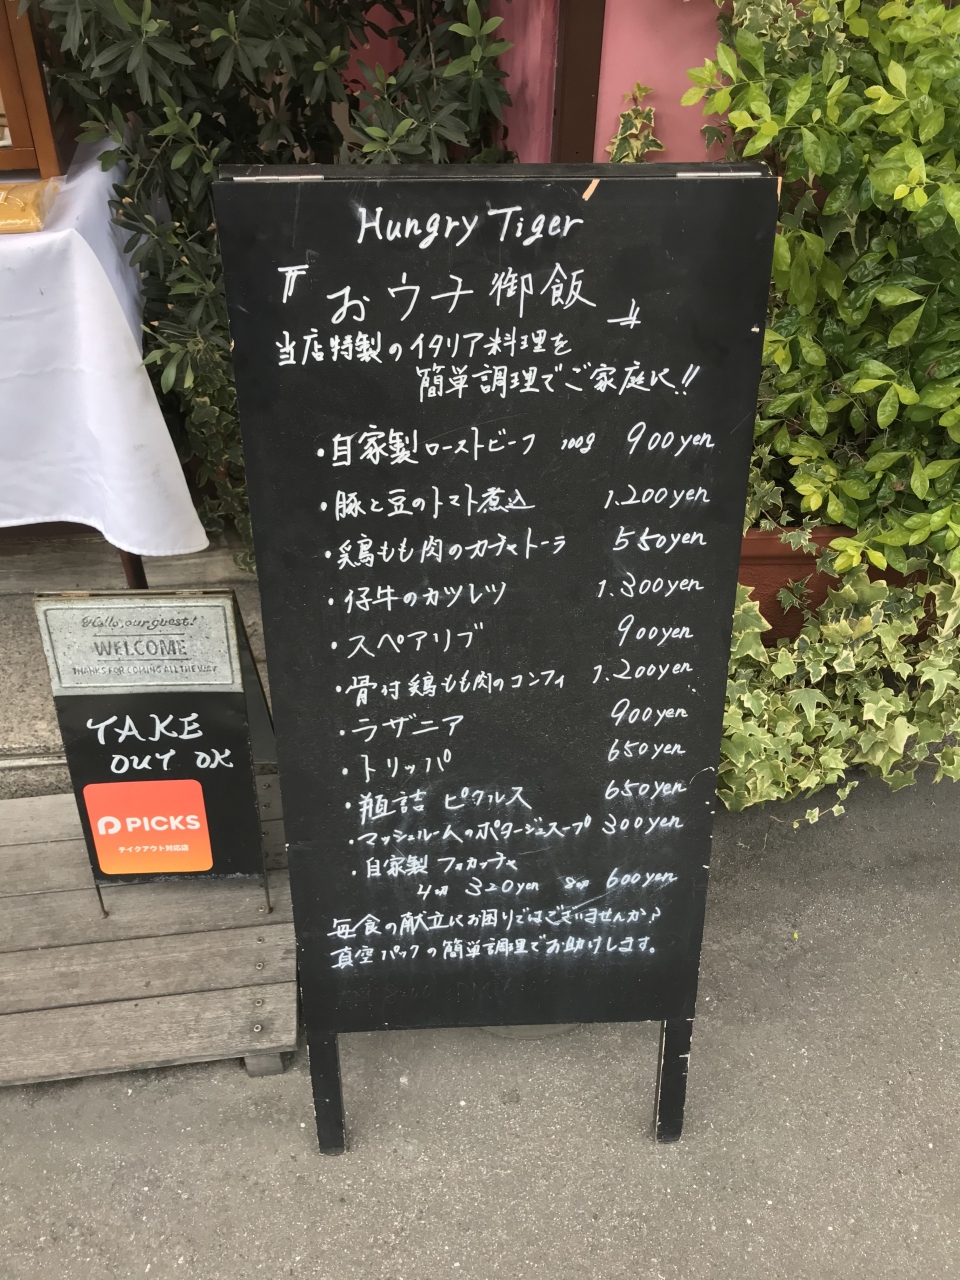 Hungry Tiger
『おウチ御飯』
当店特製のイタリア料理を
簡単調理でご家庭に!!
・自家製ローストビーフ 100g 900yen
・豚と豆のトマト煮込 1.200yen
・鶏もも肉のカチャトーラ 550yen
・仔牛のカツレツ 1.300yen
・スペアリブ 900yen
・骨付鶏もも肉のコンフィ 1.200yen
・ラザニア 900yen
・トリッパ 650yen
・瓶詰 ピクルス 650yen
・マッシュルームのポタージュスープ 300yen
・自家製 フォカッチャ
4切 320yen 8切 600yen
毎食の献立にお困りではございませんか?
真空パックの簡単調理でお助けします。
Hello, our guest!
WELCOME
THANKS FOR COMING ALL THE WAY
TAKE
OUT OK
PICKS
テイクアウト対応店